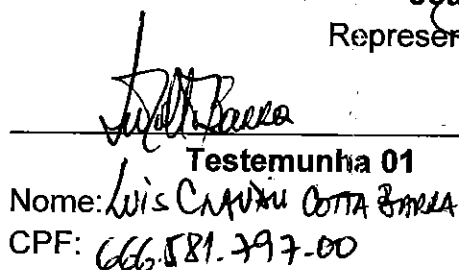 Represer
Testemunha 01
Nome: Luis COTTA BARRA
CPF: 666.581.797-00